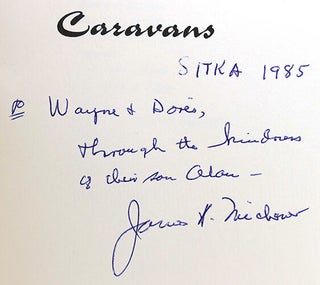 Caravans
SITKA 1985
To Wayne & Doris,
through the kindness
of their son Alan —
James A. Michener